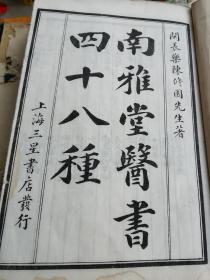 閩長樂陳修園先生著
南雅堂醫書
四十八種
上海三星書店發行